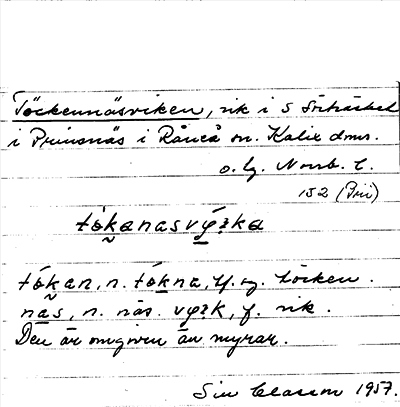 Töckennäsviken, vik i S Sörträsket
i Prinsnäs i Råneå sn. Kalix dmr.
o. lg. Norrb. l.
152 (Prii)
tókanasvý̱ːka
tókan, n. tókna, f. sg. töcken.
nas, n. näs. vyːk, f. vik.
Den är omgiven av myrar.
Siw Classon 1957.